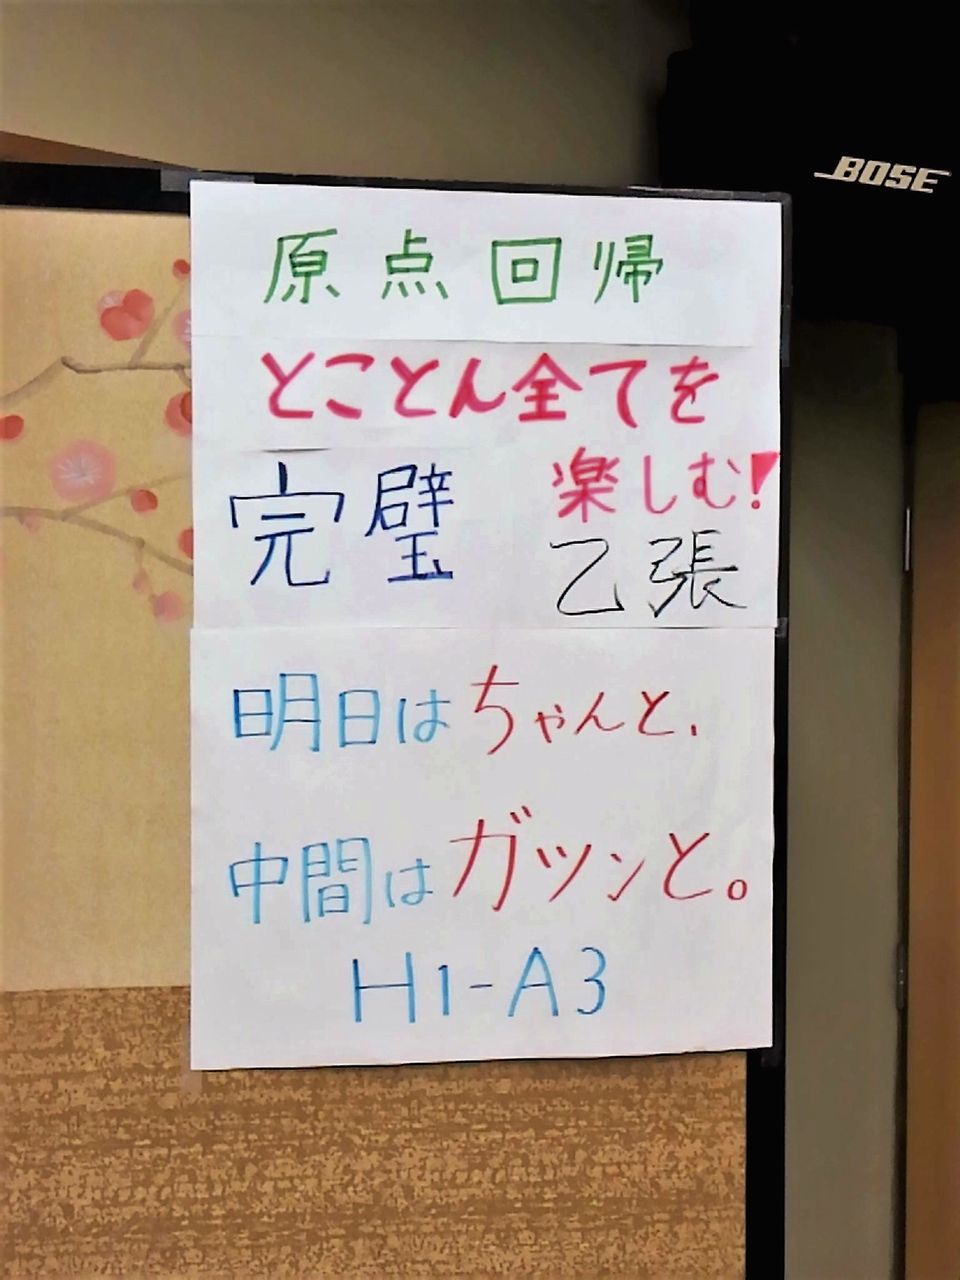 BOSE
原点回帰
とことん全てを
楽しむ!
完璧
乙張
明日はちゃんと、
中間はガツンと。
H1-A3